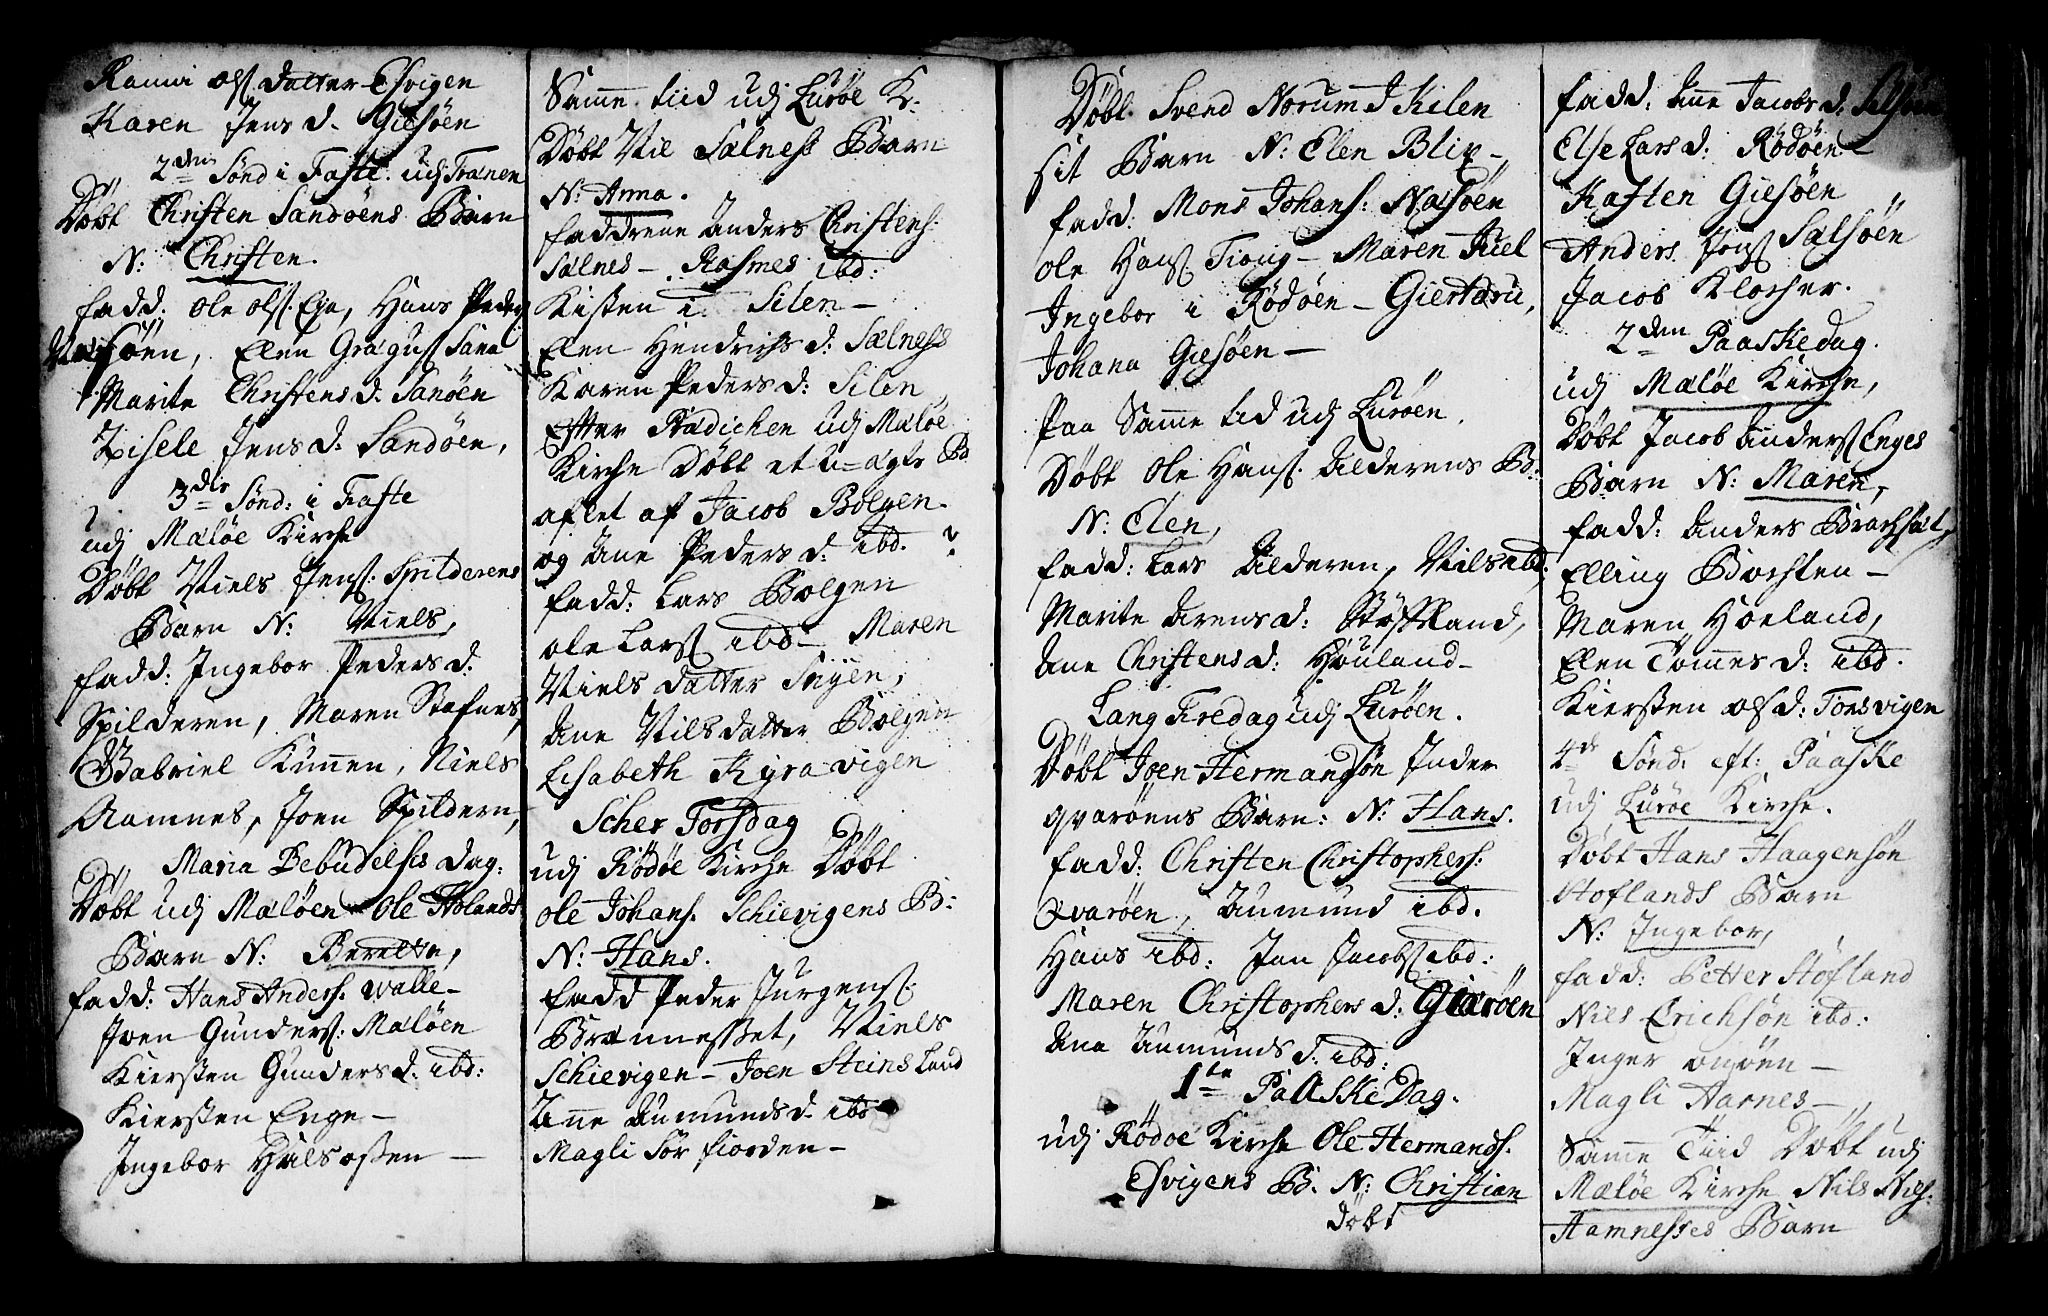 Ranni olss datter Esvigen
Karen Jens d. Giesøen
2den Sønd i Faste. udj Trænen
Døbt Christen Sandøens Barn
N: Christen.
fadd: Ole olss. Ege, Hans Peders
Væsøen, Elen Græguss Sanø
Marite Christens d. Sanøen
Zisele Jens d: Sandøen,
3die Sønd: i Faste
udj Meløe Kirche
Døbt Niels Jenss: Spilderens
Barn N: Niels,
fadd: Ingebor Peders d.
Spilderen, Maren Stafnes,
Gabriel Kunnen, Niels
Aamnes, Joen Spildern,
Maria Bebudelses dag:
Døbt udj Meløen Ole Holands
Barn N: Beretta,
fadd: Hans Anders. Walle-
Joen Gunderss: Meløen
Kiersten Gunders d. ibd:
Kiersten Enge-
Ingebor Halsosen-
Samme tiid udj Lurøe K.
Døbt Nie Selness Barn
N: Anna.
faddrene Anders Christens:
Selnes - Rasmes ibd:
Kisten i Silen-
Elen Hendrichs d: Selness
Karen Peders d: Silen,
Efter Prædichen udj Meløe
Kirche døbt et u-ægte B:
aflet af Jacob Bolgen.
og Ane Peders d: ibd.
fadd: Lars Bolgen
ole Larss ibd- Maren
Niels datter
Ane Nils datter Bolgen
Lisabeth Kyravigen
Scher Torsdag
udj Rødøe Kirche Døbt
ole Johans. Schievigens B:
N: Hans.
fadd Peder Jurgenss.
Brennesset, Niels
Schievigen - Joen Steinsland
Anne Aumunds d. ibd
Magli Sør fiorden-
Døbt. Svend Norum I Kilen
sit Barn N: Elen Blix-
fadd: Mons Johans: Næsøen
ole Hans. Tiong - Maren Juel
Ingebor i Rødøen - Giertdru,
Johana Giesøen-
Paa Samme tid udj Lurøen.
Døbt Ole Hans. Alderens B:
N: Elen,
fadd: Lars Alderen, Nils ibd:
Marite Arens d: Støffland,
Ane Christens d: Houland-
Lang Fredag udj Lurøen.
Døbt Joen Hermandsøn Inder
qvarøens Barn: N: Hans.
fadd: Christen Christophers:
Qvarøen, Aumund ibd.
Hans ibd: Jan Jacobs ibd:
Maren Christophers d: Giærøen
Ane Aumunds d. ibd:
1te Paaske Dag.
udj Rødøe Kirche Ole Hermands.
Esvigens B. N: Christian
døbt
fadd: Ane Jacobs d: Selsøen
Else Lars d: Rødøen-
Kasten Giesøen
Anders Jens Selsøen
Jacob Klocher.
2den Paaskedag.
udj Meløe Kirche,
Døbt Jacob Anderss Enges
Barn N: Maren,
fadd: Anders Brachset,
Elling Bochsten-
Maren Høeland,
Elen Tømmes d: ibd.
Kiersten ols d: Torsvigen
4de Sønd. eft: Paaske
udj Lurøe Kirche.
Døbt Hans Haagensøn
Stoflands Barn
N: Ingebor,
fadd: Petter Støfland
Nils Erichsøn ibd:
Inger onøen-
Magli Aarnes-
Samme Tiid Døbt udj
Meløe Kirche Nils Nils:
Hamnesses Barn